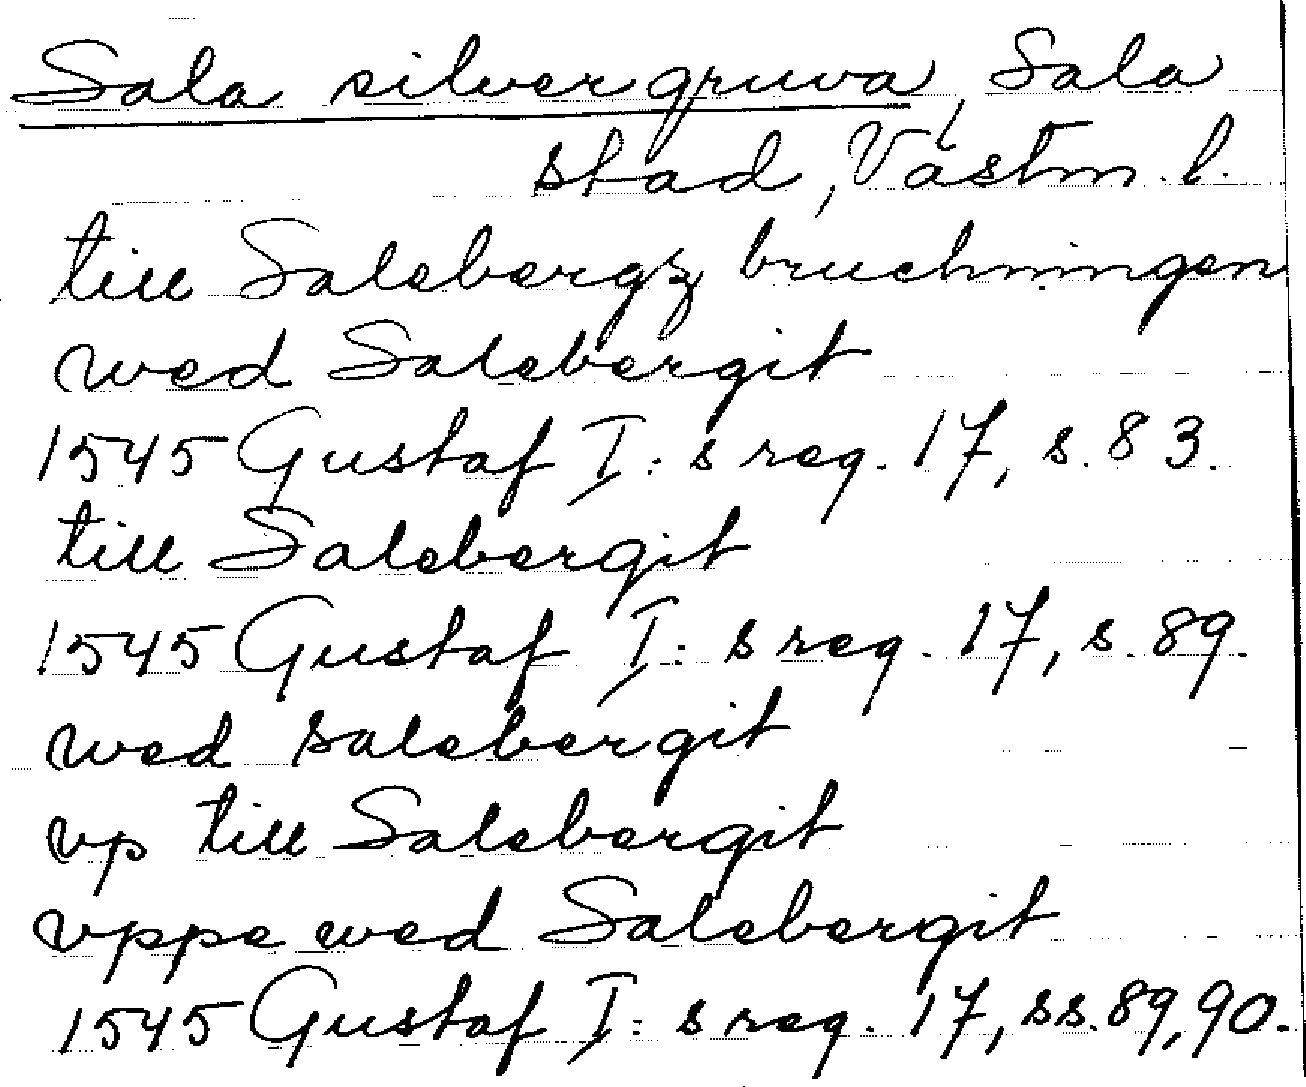 Sala silvergruva, Sala
stad, Västm. l.
till Salebergz bruchningen
wed Salebergit
1545 Gustaf I: s reg. 17, s. 83.
till Salebergit
1545 Gustaf I: s reg. 17, s. 89.
wed salebergit
vp till Salebergit
vppe wed Salebergit
1545 Gustaf I: s reg. 17, ss. 89, 90.